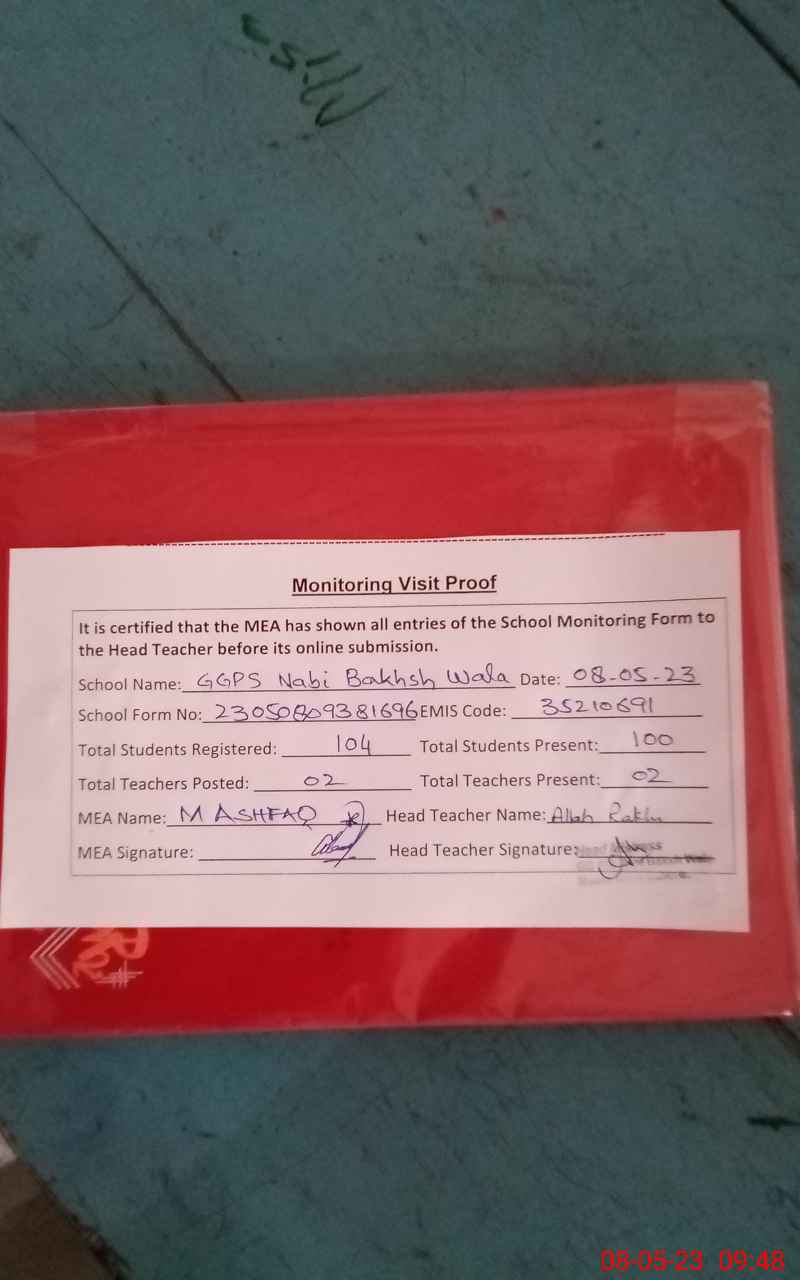 Monitoring Visit Proof
It is certified that the MEA has shown all entries of the School Monitoring Form to
the Head Teacher before its online submission.
School Name: GGPS Nabi Bakhsh Wala Date: 08-05-23
School Form No: 23050809381696 EMIS Code: 35210691
Total Students Registered: 104 Total Students Present: 100
Total Teachers Posted: 02 Total Teachers Present: 02
MEA Name: M ASHFAQ Head Teacher Name: Allah Rakhi
MEA Signature: Head Teacher Signature:
08-05-23 09:48